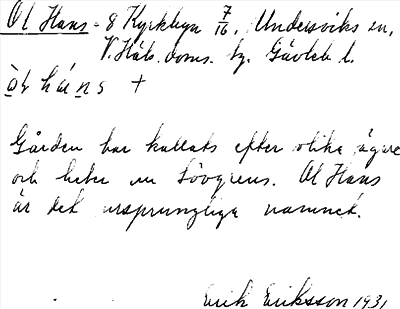 Ol Hans - 8 Kyrkbyn 7/16, Undersviks sn,
V. Häls. doms. hg. Gävleb l.
òl háns +
Gården har kallats efter olika ägare
och heter nu Lövgrens. Ol Hans
är det ursprungliga namnet.
Erik Eriksson 1931